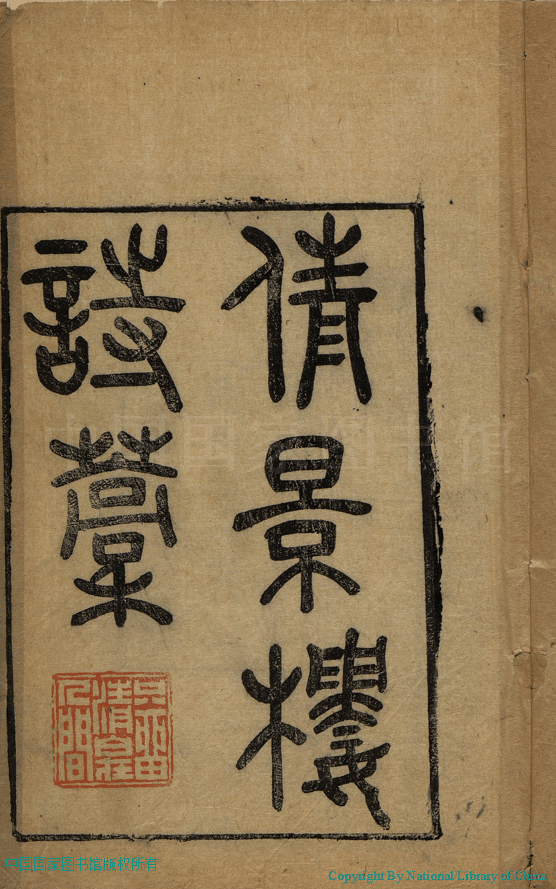 倩景樓
詩藁
中国国家图书馆
中国国家图书馆版权所有
Copyright By National Library of China